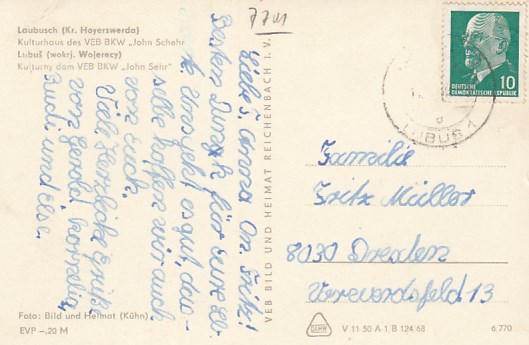 7701
Laubusch (Kr. Hoyerswerda)
Kulturhaus des VEB BKW „John Schehr"
Lubuš (wokrj. Wojerecy)
Kulturny dom VEB BKW „John Sehr"
Liebe Anna On. Fritz!
Besten Dank für eure
Uns geht es gut, das-
selbe hoffen wir auch
von Euch.
Viele Herzliche Grüße
von Gerold Kornelia
Rudi und Ilse.
Foto: Bild und Heimat (Kühn)
EVP –,20 M
VEB BILD UND HEIMAT REICHENBACH I. V.
DEUTSCHE
DEMOKRATISCHE REPUBLIK
10
Familie
Fritz Müller
8030 Dresden
13
V 11 50 A 1 B 124/68
6,770